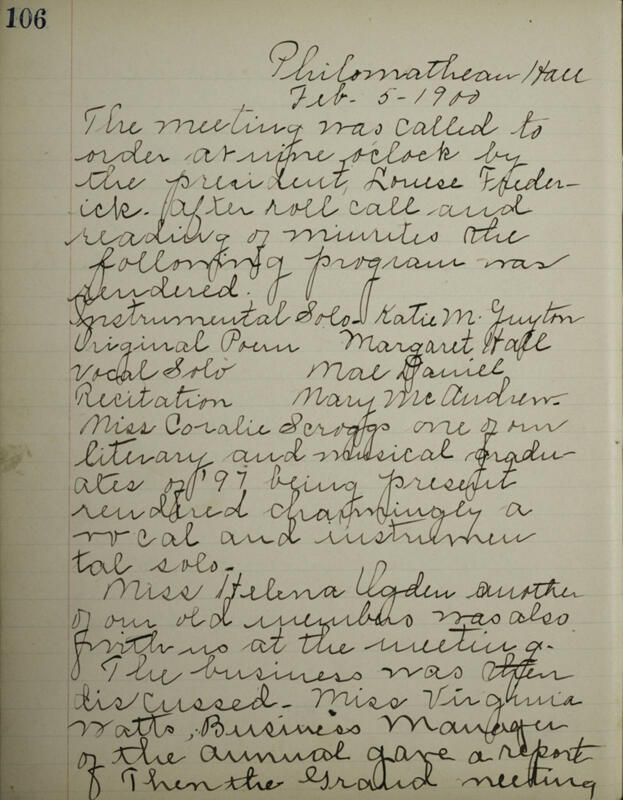 106
Philomathean Hall
Feb. 5-1900
The meeting was called to
order at nine o'clock by
the president, Louise Freder-
ick. After roll call and
reading of minutes the
following program was
rendered.
Instrumental Solo- Katie M. Guyton
Original Poem Margaret Hall
Vocal Solo Mae Daniel
Recitation Mary McAndrew-
Miss Coralie Scroggs one of our
literary and musical gradu
ates of '97 being present
rendered charmingly a
vocal and instrumen
tal solo-
Miss Helena Ogden another
of our old members was also
with us at the meeting-
The business was then
discussed- Miss Virginia
Watts, Business Manager
of the annual gave a report
Then the Grand meeting